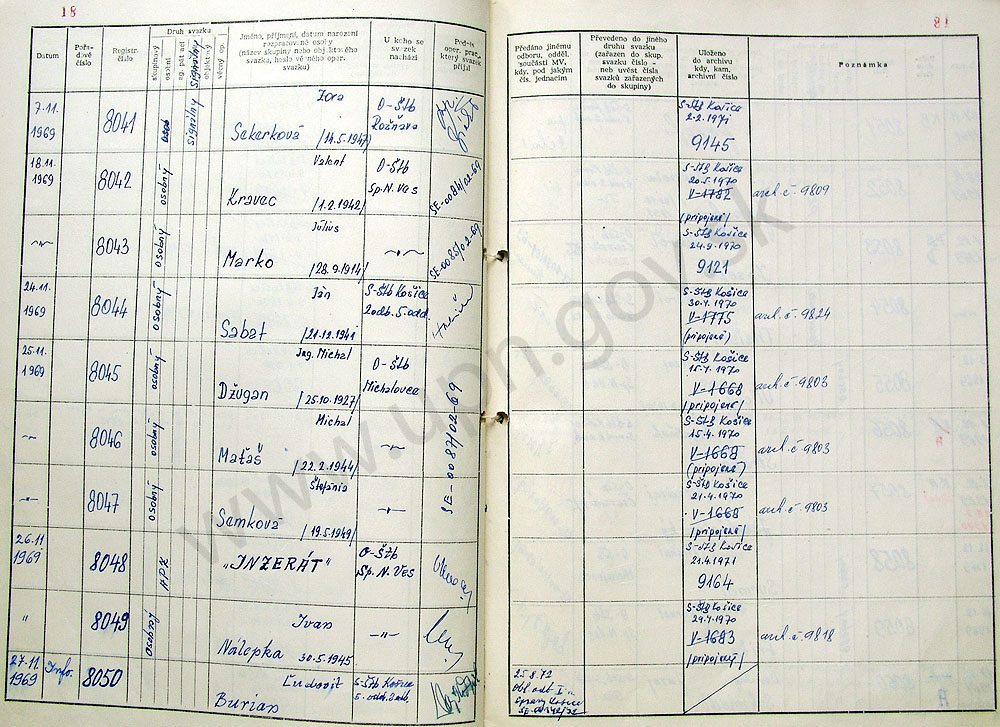 18
18
Datum
Pořadové číslo
Registr. číslo
Druh svazku
skupinový
osobní
ag. pát. akcí
signálny
objektový
věcný
Jméno, příjmení, datum narození
rozpracované osoby
(název skupiny nebo objektového
svazku, heslo věného oper.
svazku)
U koho se
svazek
nachází
Podpis
oper. prac.,
který svazek
přijal
Předáno jinému
odboru, odděl.
součásti MV,
kdy, pod jakým
čís. jednacím
Převedeno do jiného
druhu svazku
(zařazen do skup.
svazku číslo -
neb uvést čísla
svazků zařazených
do skupiny)
Uloženo
do archivu
kdy, kam,
archivní číslo
Poznámka
7.11.
1969
8041
signálny
Zora
Sekerková /14.5.1947/
O-Štb
Rožňava
S-ŠtB Košice
2.2.1971
9145
18.11.
1969
8042
osobný
Valent
Kravec /1.2.1942/
O-Štb
Sp.N.Ves
SE-0084/02-69
S-ŠtB Košice
20.5.1970
V-1782 arch.č. 9809
/pripojené/
8043
osobný
Július
Marko /28.9.1914/
SE-0085/02-69
S-ŠtB Košice
24.9.1970
9121
24.11.
1969
8044
osobný
Ján
Sabat /21.12.1941
S-Štb Košice
2odb. 5.odd.
S-ŠtB Košice
30.4.1970
V-1775 arch.č. 9824
(pripojené)
25.11.
1969
8045
osobný
Ing. Michal
Džugan /25.10.1927/
O-Štb
Michalovce
SE-0087/02-69
S-ŠtB Košice
15.4.1970
V-1668 arch.č. 9803
/pripojené/
8046
osobný
Michal
Maťaš /22.2.1944/
S-ŠtB Košice
15.4.1970
V-1668 arch.č. 9803
(pripojené)
8047
osobný
Štefánia
Semková /19.5.1949/
S-ŠtB Košice
21.4.1970
V-1668 arch.č. 9803
/pripojené/
26.11
1969
8048
APK
„INZERÁT"
O-Štb
Sp. N. Ves
S-ŠtB Košice
21.4.1971
9164
"
8049
osobný
Ivan
Nálepka 30.5.1945
-"-
S-ŠtB Košice
29.4.1970
V-1693 arch.č. 9818
/pripojený/
27.11.
1969
Info.
8050
Ľudovít
Burian
S-Štb Košice
5.odd. 2odb.
25.8.72
Obl. odb. I.
Správy Košice
www.upn.gov.sk